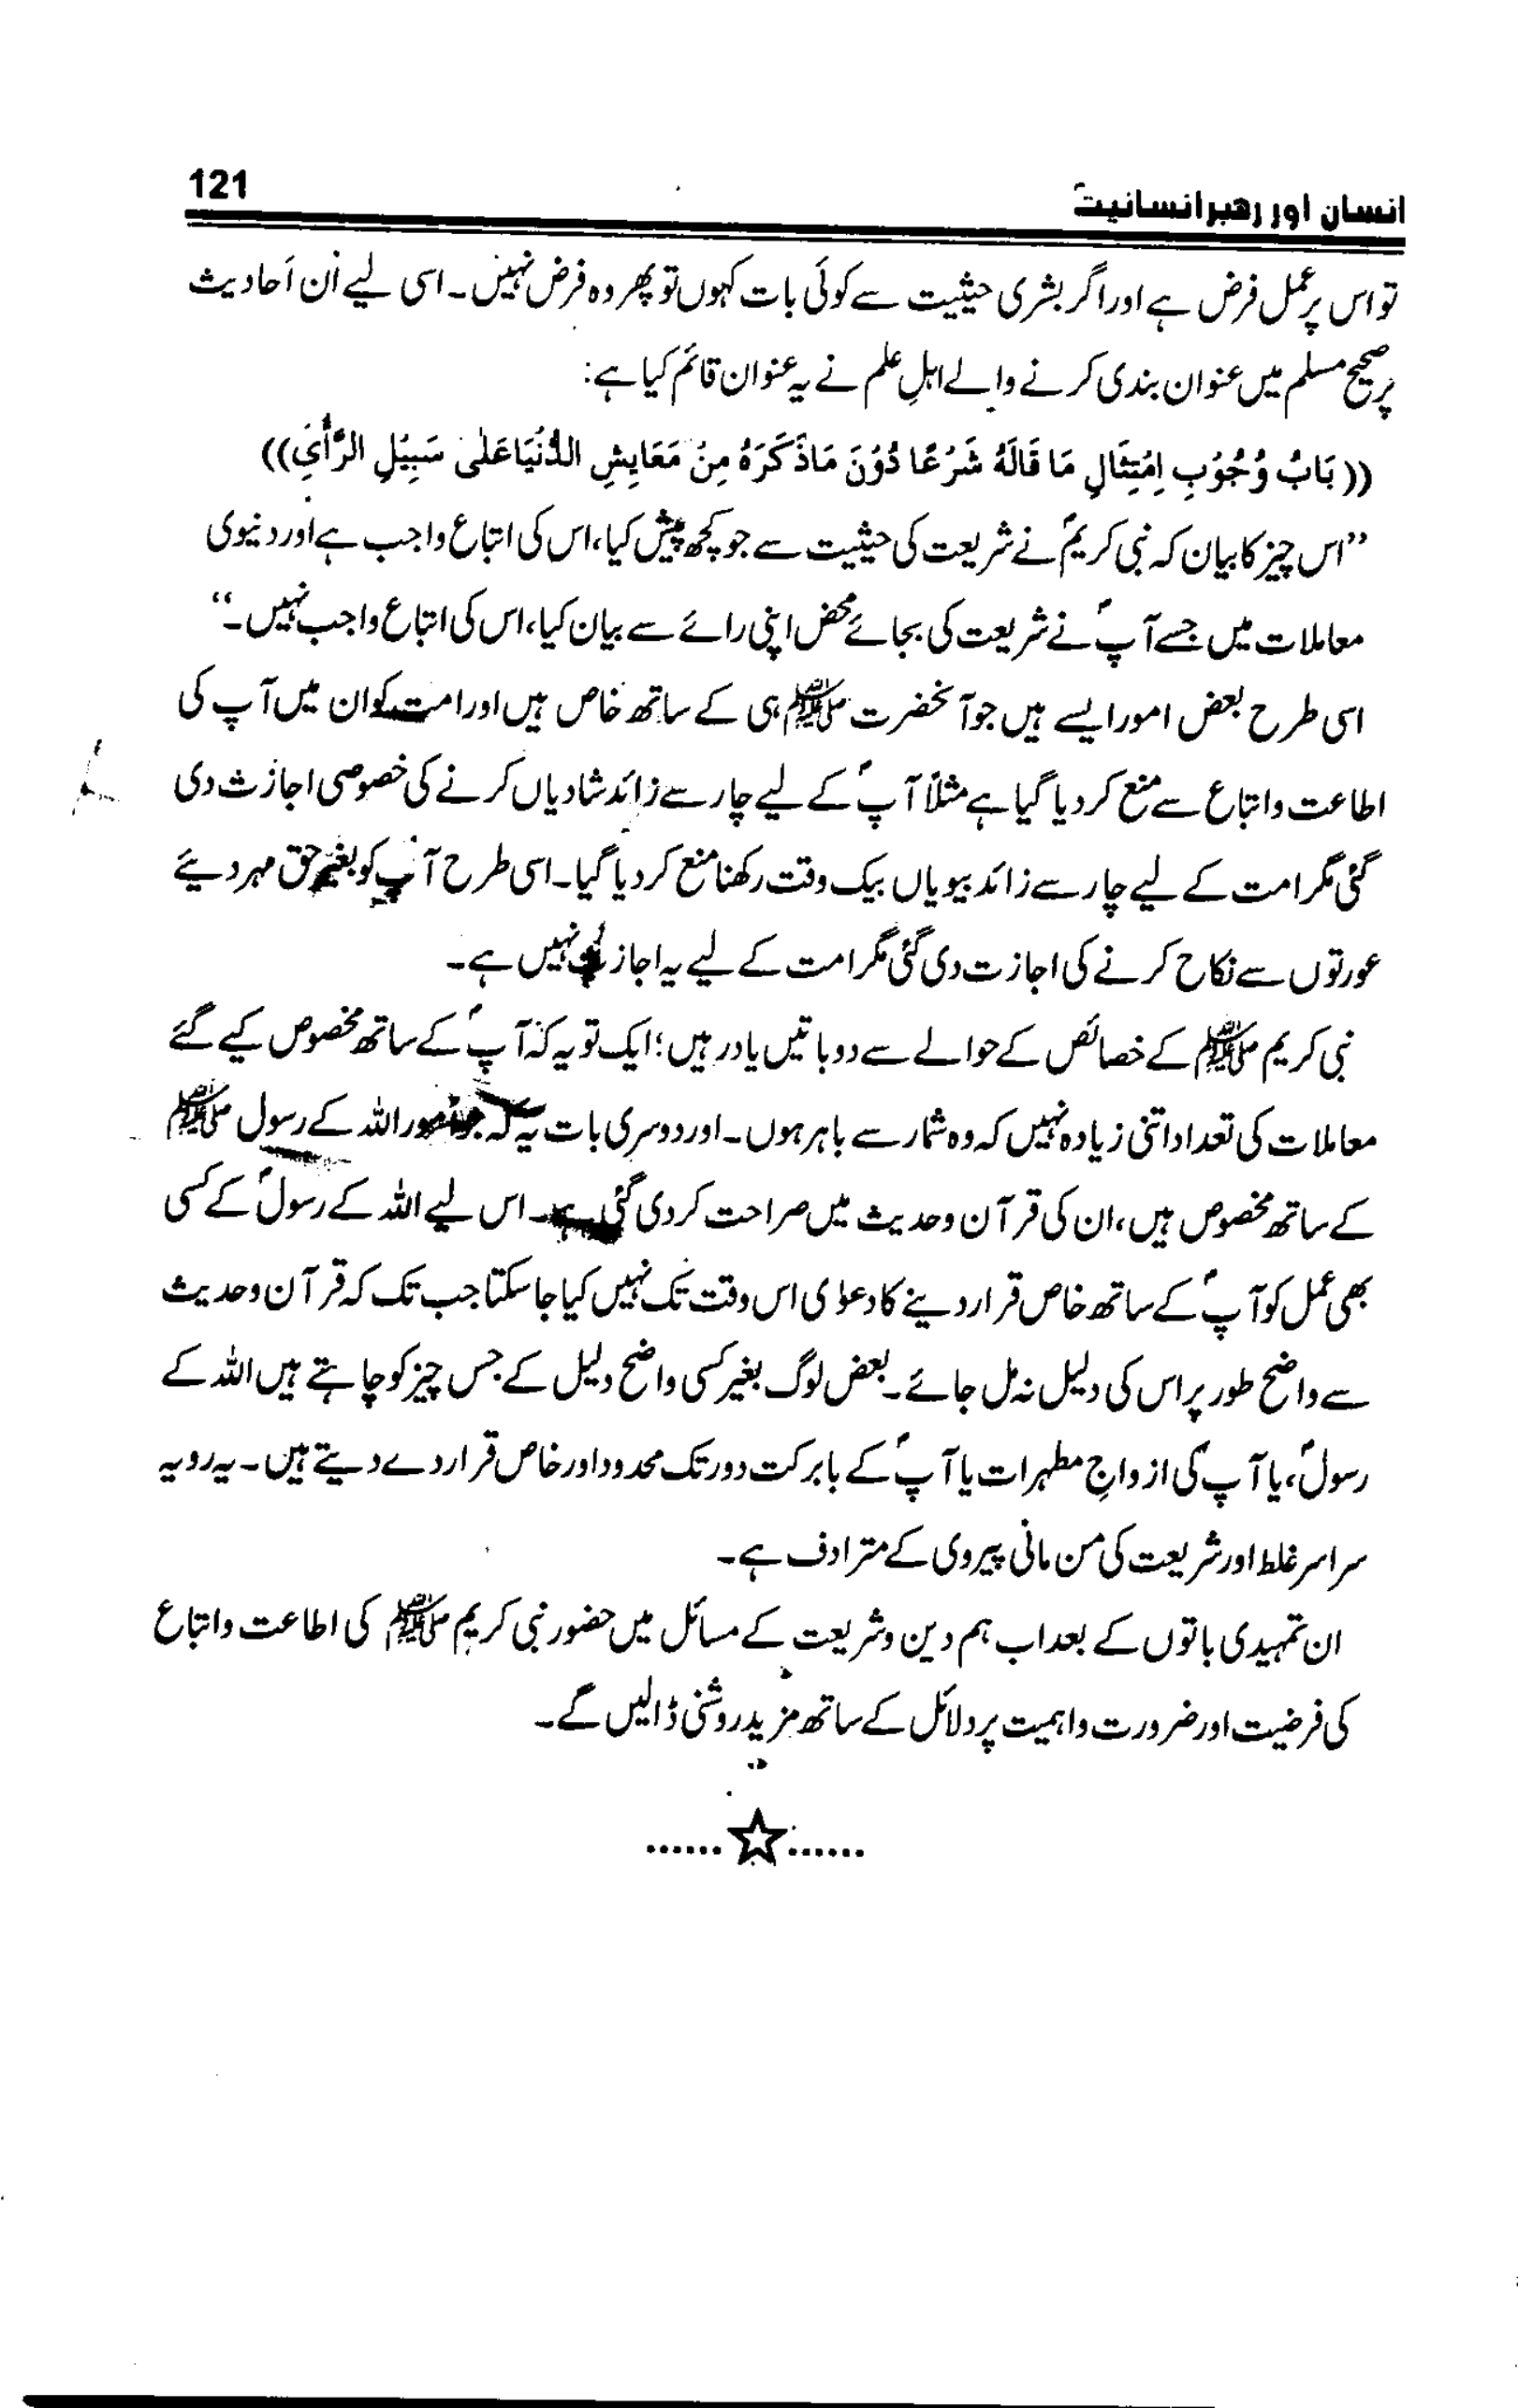 انسان اور رهبر انسانیتؐ
121
تو اس پر عمل فرض ہے اور اگر بشری حیثیت سے کوئی بات کہوں تو پھر وہ فرض نہیں۔ اسی لیے اُن اَحادیث
پر صحیح مسلم میں عنوان بندی کرنے والے اہلِ علم نے یہ عنوان قائم کیا ہے:
((بَابُ وُجُوْبِ اِمْتِثَالِ مَا قَالَهُ شَرْعًا دُوْنَ مَاذَكَرَهُ مِنْ مَعَايِشِ الدُّنْيَا عَلٰى سَبِيْلِ الرَّأْيِ))
”اس چیز کا بیان کہ نبی کریمؐ نے شریعت کی حیثیت سے جو کچھ پیش کیا، اس کی اتباع واجب ہے اور دنیوی
معاملات میں جسے آپؐ نے شریعت کی بجائے محض اپنی رائے سے بیان کیا، اس کی اتباع واجب نہیں۔“
اسی طرح بعض امور ایسے ہیں جو آنحضرت ﷺ ہی کے ساتھ خاص ہیں اور امت کو ان میں آپ کی
اطاعت و اتباع سے منع کر دیا گیا ہے مثلاً آپؐ کے لیے چار سے زائد شادیاں کرنے کی خصوصی اجازت دی
گئی مگر امت کے لیے چار سے زائد بیویاں بیک وقت رکھنا منع کر دیا گیا۔ اسی طرح آپ کو بغیر حق مہر دیئے
عورتوں سے نکاح کرنے کی اجازت دی گئی مگر امت کے لیے یہ اجازت نہیں ہے۔
نبی کریم ﷺ کے خصائص کے حوالے سے دو باتیں یاد رہیں؛ ایک تو یہ کہ آپؐ کے ساتھ مخصوص کیے گئے
معاملات کی تعداد اتنی زیادہ نہیں کہ وہ شمار سے باہر ہوں۔ اور دوسری بات یہ کہ جو امور اللہ کے رسول ﷺ
کے ساتھ مخصوص ہیں، ان کی قرآن و حدیث میں صراحت کر دی گئی ہے۔ اس لیے اللہ کے رسولؐ کے کسی
بھی عمل کو آپؐ کے ساتھ خاص قرار دینے کا دعوٰی اس وقت تک نہیں کیا جا سکتا جب تک کہ قرآن و حدیث
سے واضح طور پر اس کی دلیل نہ مل جائے۔ بعض لوگ بغیر کسی واضح دلیل کے جس چیز کو چاہتے ہیں اللہ کے
رسولؐ، یا آپؐ کی ازواجِ مطہرات یا آپؐ کے بابرکت دور تک محدود اور خاص قرار دے دیتے ہیں۔ یہ رویہ
سراسر غلط اور شریعت کی من مانی پیروی کے مترادف ہے۔
ان تمہیدی باتوں کے بعد اب ہم دین و شریعت کے مسائل میں حضور نبی کریم ﷺ کی اطاعت و اتباع
کی فرضیت اور ضرورت و اہمیت پر دلائل کے ساتھ مزید روشنی ڈالیں گے۔
......☆......